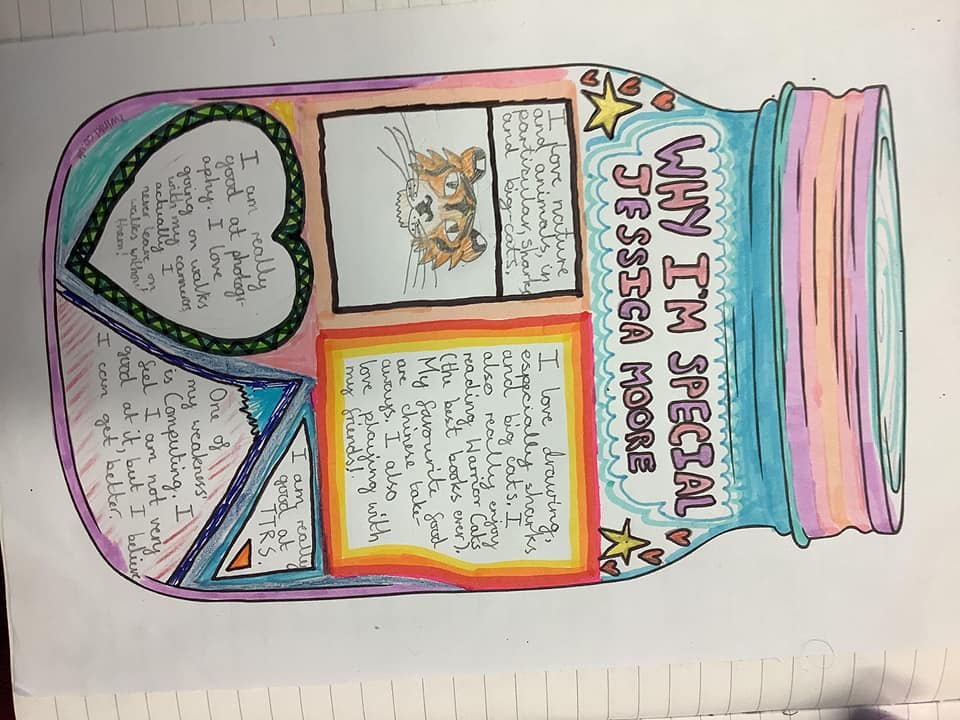 WHY I'M SPECIAL
JESSICA MOORE
I love nature
and animals, in
particular, sharks
and big-cats.
I love drawing:
especially sharks
and big cats. I
also really enjoy
reading Warrior Cats
(the best books ever).
My favourite food
are chinese take-
aways. I also
love playing with
my friends!
I am really
good at photogr-
aphy. I love
going on walks
with my camera,
actually I
never leave on
walks without
them!
I am really
good at
TTRS.
One of
my weakness'
is Computing. I
feel I am not very
good at it, but I believe
I can get better
twinkl.co.uk